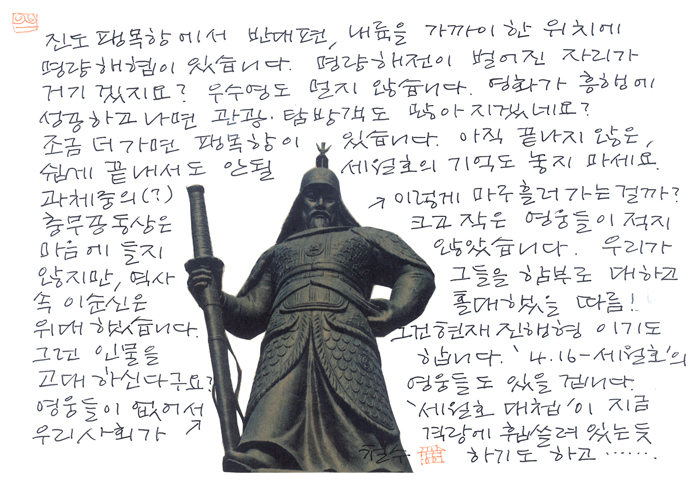 진도 팽목항에서 반대편, 내륙을 가까이 한 위치에
명량해협이 있습니다. 명량해전이 벌어진 자리가
거기 겠지요? 우수영도 멀지 않습니다. 영화가 흥행에
성공하고 나면 관광·탐방객도 많아 지겠네요?
조금 더 가면 팽목항이 있습니다. 아직 끝나지 않은,
쉽게 끝내서도 안될 세월호의 기억도 놓지 마세요.
과체중의(?)
충무공동상은
마음에 들지
않지만, 역사
속 이순신은
위대했습니다.
그런 인물을
고대하신다구요?
영웅들이 없어서
우리사회가 ↗
↗ 이렇게 마구 흘러가는걸까?
크고 작은 영웅들이 적지
않았습니다. 우리가
그들을 함부로 대하고
홀대했을 따름!
그건 현재 진행형 이기도
합니다. '4.16-세월호'의
영웅들도 있을 겁니다.
'세월호 대첩'이 지금
격랑에 휩쓸려 있는듯
하기도 하고…….
철수